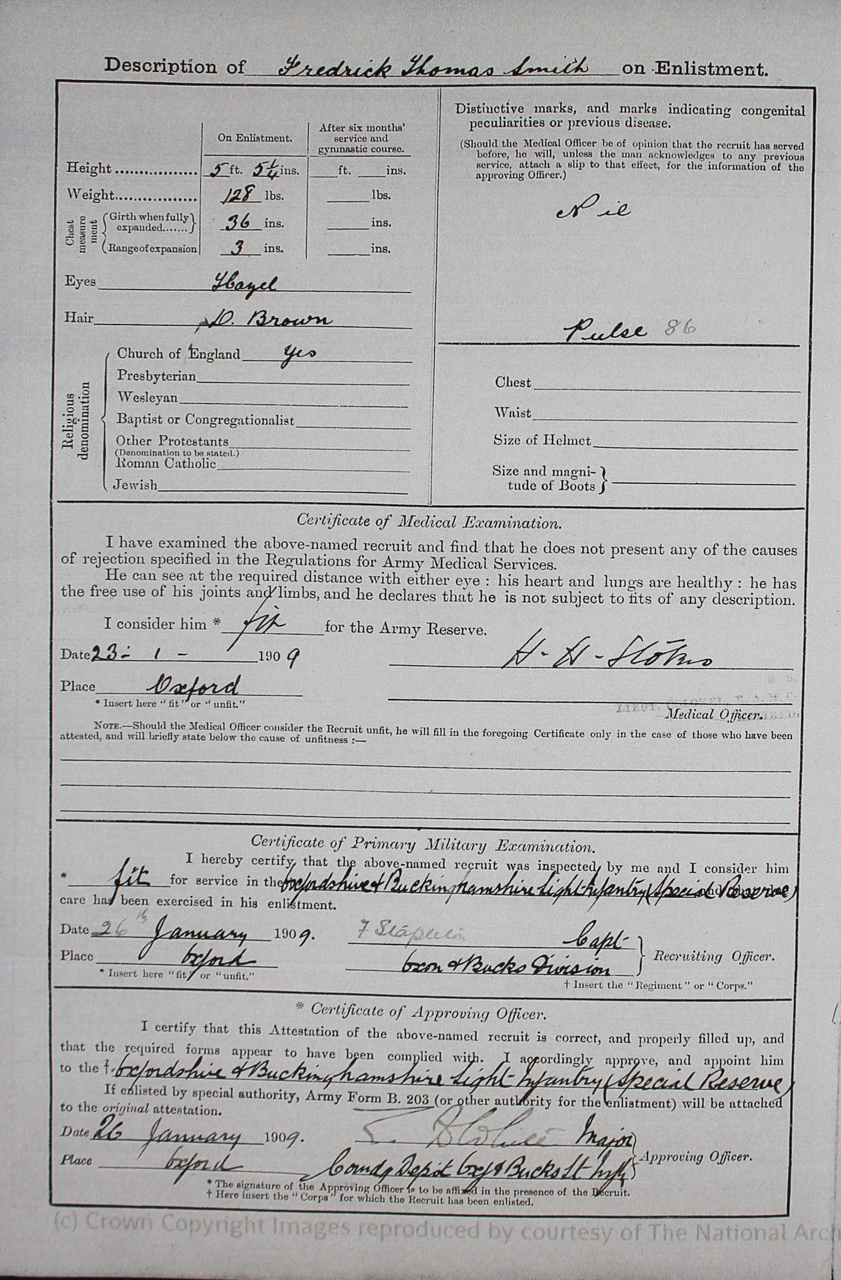 Description of Fredrick Thomas Smith on Enlistment.
On Enlistment.
After six months' service and gymnastic course.
Height 5 ft. 5¼ ins. ft. ins.
Weight 128 lbs. lbs.
Chest measurement
Girth when fully expanded 36 ins. ins.
Range of expansion 3 ins. ins.
Eyes Hazel
Hair D. Brown
Religious denomination
Church of England Yes
Presbyterian
Wesleyan
Baptist or Congregationalist
Other Protestants
(Denomination to be stated.)
Roman Catholic
Jewish
Distinctive marks, and marks indicating congenital
peculiarities or previous disease.
(Should the Medical Officer be of opinion that the recruit has served
before, he will, unless the man acknowledges to any previous
service, attach a slip to that effect, for the information of the
approving Officer.)
Nil
Pulse 86
Chest
Waist
Size of Helmet
Size and magni-
tude of Boots
Certificate of Medical Examination.
I have examined the above-named recruit and find that he does not present any of the causes
of rejection specified in the Regulations for Army Medical Services.
He can see at the required distance with either eye : his heart and lungs are healthy : he has
the free use of his joints and limbs, and he declares that he is not subject to fits of any description.
I consider him * fit for the Army Reserve.
Date 23 - 1 - 1909
H. H. Stokes
Place Oxford
* Insert here "fit" or "unfit."
Medical Officer.
NOTE.—Should the Medical Officer consider the Recruit unfit, he will fill in the foregoing Certificate only in the case of those who have been
attested, and will briefly state below the cause of unfitness :—
Certificate of Primary Military Examination.
I hereby certify that the above-named recruit was inspected by me and I consider him
* fit for service in the Oxfordshire & Buckinghamshire Light Infantry (Special Reserve)
care has been exercised in his enlistment.
Date 26th January 1909. F Stapleton Capt
Place Oxford Oxon & Bucks Division Recruiting Officer.
* Insert here "fit" or "unfit." † Insert the "Regiment" or "Corps."
* Certificate of Approving Officer.
I certify that this Attestation of the above-named recruit is correct, and properly filled up, and
that the required forms appear to have been complied with. I accordingly approve, and appoint him
to the † Oxfordshire & Buckinghamshire Light Infantry (Special Reserve)
If enlisted by special authority, Army Form B. 203 (or other authority for the enlistment) will be attached
to the original attestation.
Date 26 January 1909. Major
Approving Officer.
Place Oxford Comdg Depot Oxf & Bucks Lt Infy
* The signature of the Approving Officer is to be affixed in the presence of the Recruit.
† Here insert the "Corps" for which the Recruit has been enlisted.
(c) Crown Copyright Images reproduced by courtesy of The National Arch